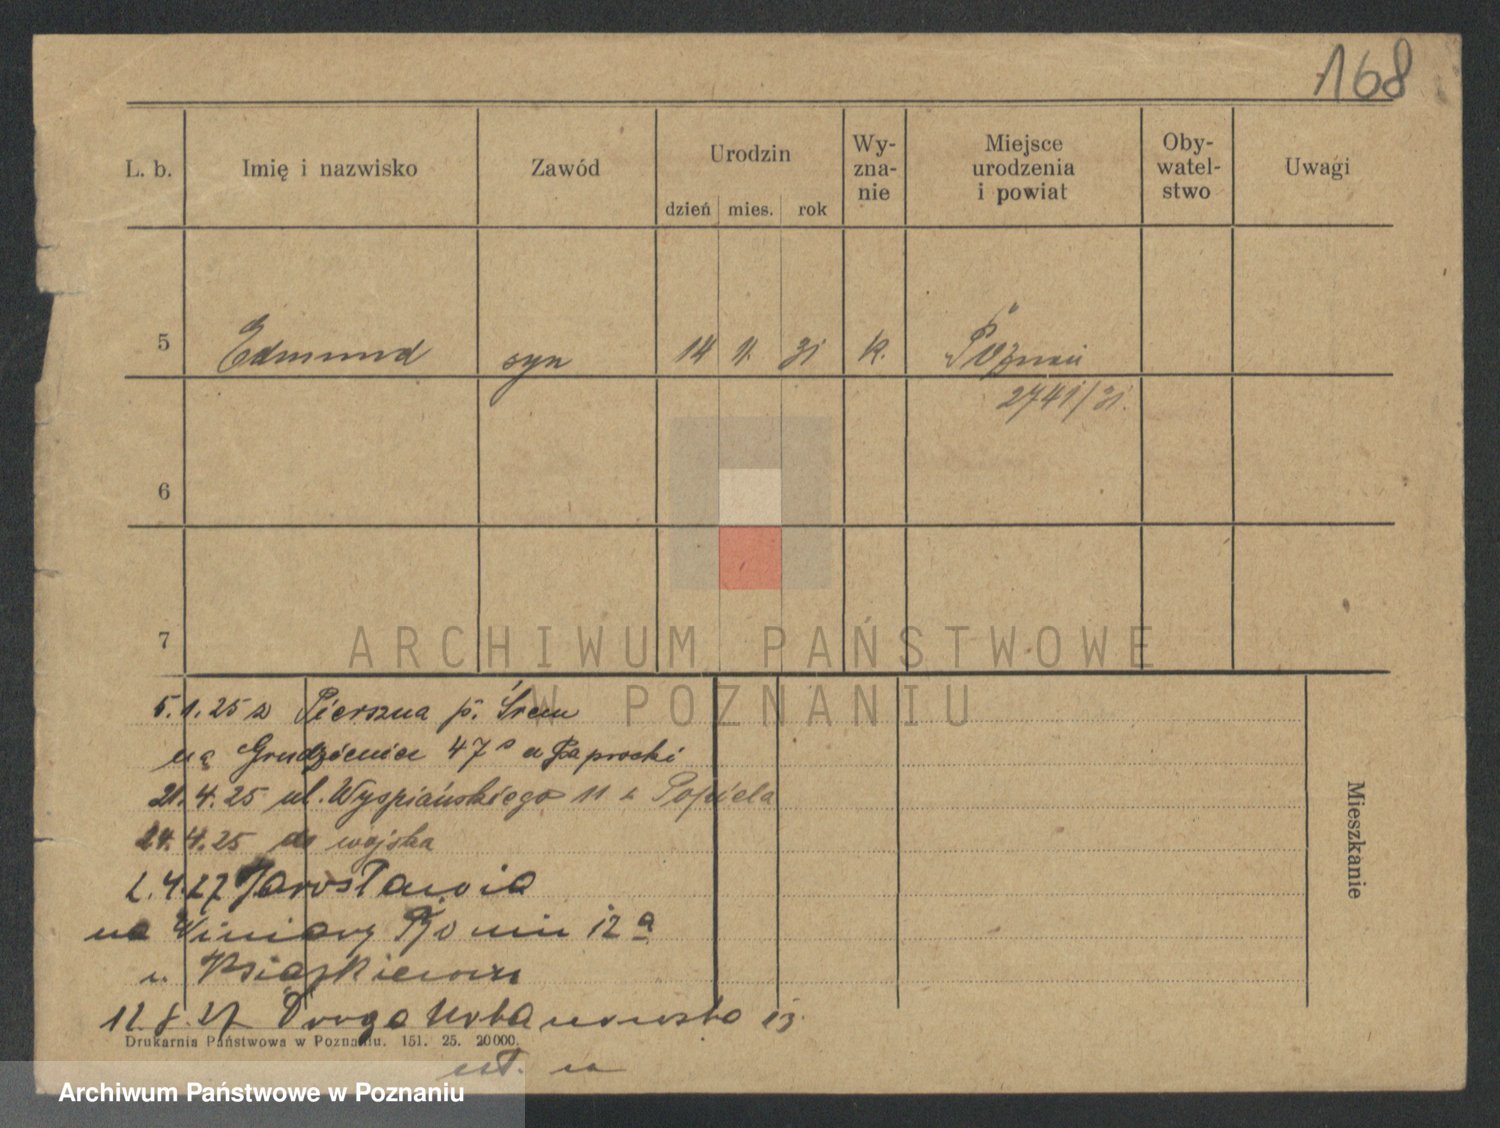 168
L. b. Imię i nazwisko Zawód Urodzin dzień mies. rok Wy-zna-nie Miejsce urodzenia i powiat Oby-watel-stwo Uwagi
5 Edmund syn 14 11. 31 k. Poznań
2741/31.
6
7
ARCHIWUM PAŃSTWOWE
W POZNANIU
5.1.25 z Pierszna p. Śrem
na Grudzieniec 47 u Paprocki
21.4.25 ul. Wyspiańskiego 11 u Popiela
24.4.25 do wojska
2.4.27 Jarosławia
na Winiary 12a
u. Książkiewicz
12.8.27 Droga Urbanowska 13.
Mieszkanie
Drukarnia Państwowa w Poznaniu. 151. 25. 20000.
Archiwum Państwowe w Poznaniu